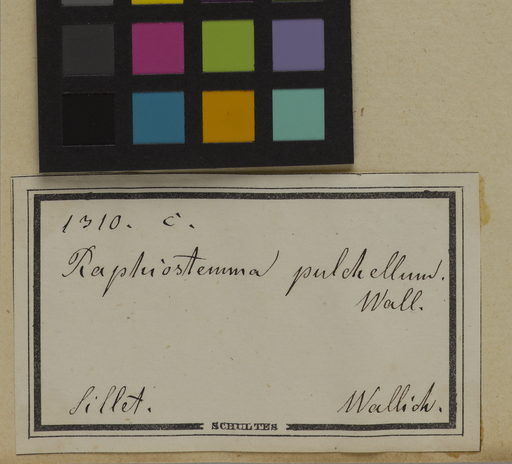 1310. C.
Raphiostemma pulchellum.
Wall.
Sillet. Wallich.
SCHULTES